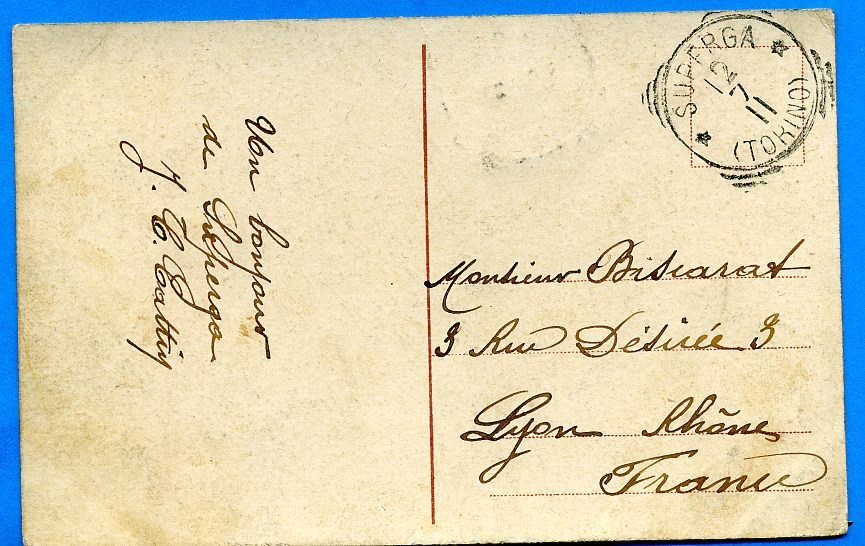 Un bonjour
de Superga
SUPERGA
12
7
11
(TORINO)
Monsieur Biscarat
3 Rue Désirée 3
Lyon Rhône
France